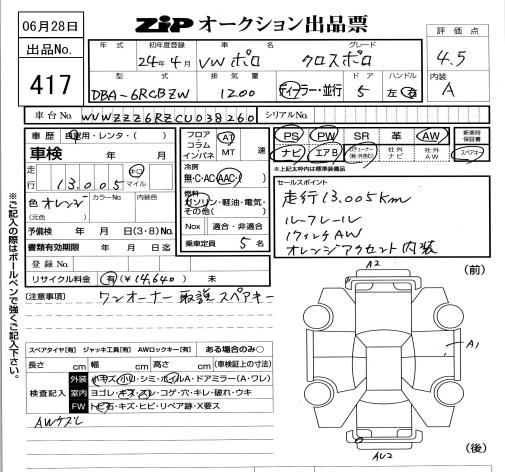 06月28日
ZiP オークション出品票
出品No.
417
年式 初年度登録 車名 グレード
24年4月 VW ポロ クロスポロ
型式 排気量 ドア ハンドル
DBA-6RCBZW 1200 ディーラー・並行 5 左 右
評価点
4.5
内装
A
車台No. WVWZZZ6RZCU038260 シリアルNo.
車歴 自家用・レンタ・( )
車検 年 月
走行 13,005 キロ マイル
色 オレンジ カラーNo. 内装色
(元色)
予備検 年 月 日(3・8)No.
書類有効期限 年 月 日迄
登録No.
リサイクル料金 有(¥14,640) 未
フロア コラム インパネ AT MT 速
冷房
無・C・AC・AAC
燃料
ガソリン・軽油・電気・その他( )
Nox 適合・非適合
乗車定員 5 名
PS PW SR 革 AW 新車時保証書
ナビ エアB 社外ナビ 社外AW スペアキー
※上記太枠内は標準装備品
セールスポイント
走行13,005km
ルーフレール
17インチAW
オレンジアクセント内装
(注意事項) ワンオーナー 取説 スペアキー
※ご記入の際はボールペンで強くご記入下さい。
スペアタイヤ[有] ジャッキ工具[有] AWロックキー[有] ある場合のみ○
長さ cm 幅 cm 高さ cm (車検証上の寸法)
検査記入
外装 小キズ・小凹・シミ・ホイルA・ドアミラー(A・ワレ)
室内 ヨゴレ・キズ・スレ・コゲ・穴・キレ・破れ・ウキ
FW トビ石・キズ・ヒビ・リペア跡・X要ス
AWケズレ
(前)
A2
A1
AU2
(後)